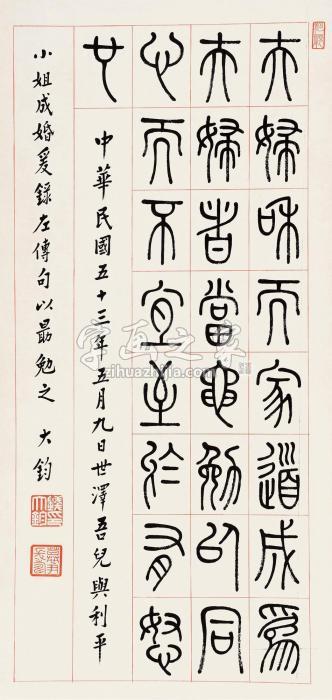 夫婦和而家道成為
夫婦者當黽勉以同
心而不宜至於有怒
也
中華民國五十三年五月九日世澤吾兒與利平
小姐成婚爰錄左傳句以朂勉之 大鈞
字画之家
zihuazhijia.com